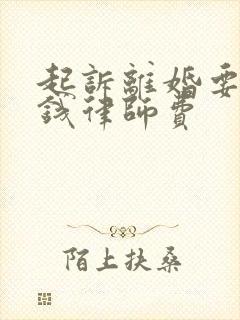 起訴離婚要
錢律師費
陌上扶桑